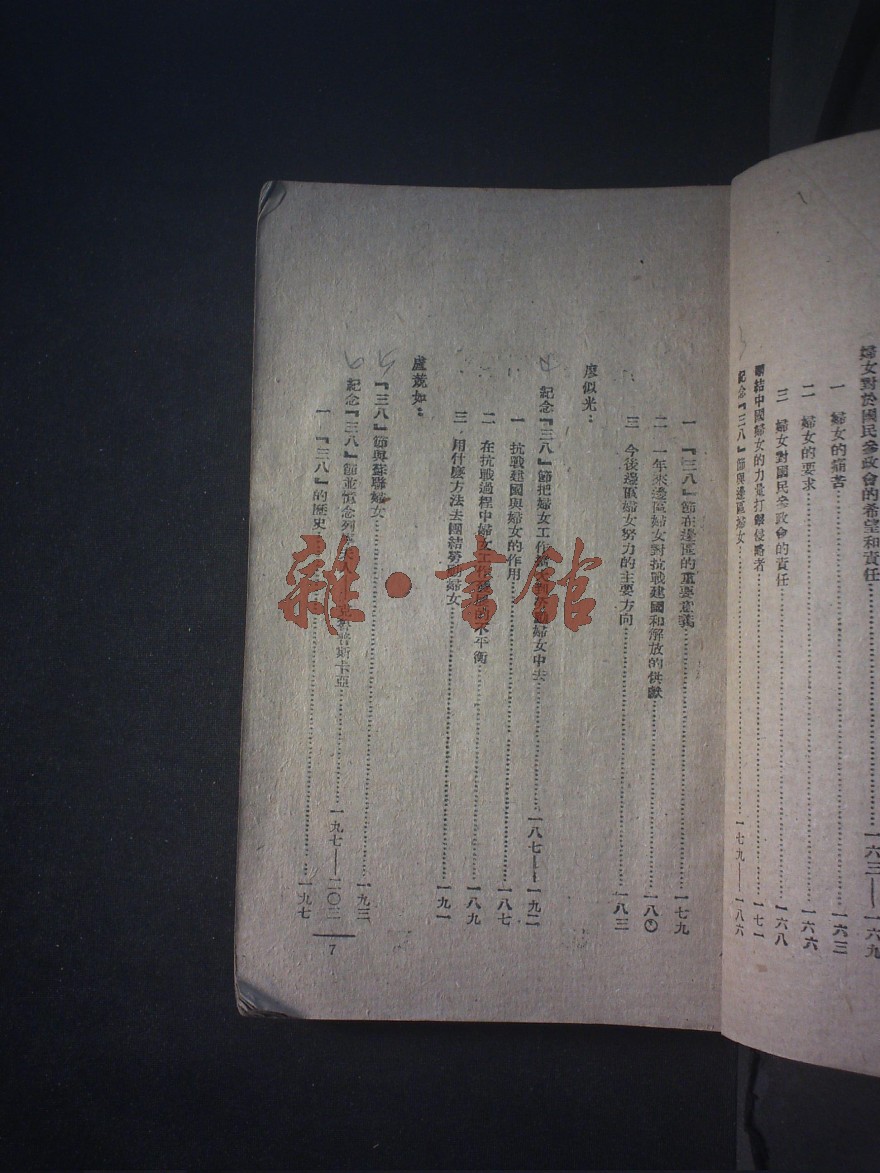 婦女對於國民參政會的希望和責任……一六三——一六九
一 婦女的痛苦……一六三
二 婦女的要求……一六六
三 婦女對國民參政會的責任……一六八
團結中國婦女的力量打擊侵略者……一七一
紀念『三八』節與邊區婦女……一七九——一八六
一 『三八』節在邊區的重要意義……一七九
二 一年來邊區婦女對抗戰建國和解放的供獻……一八〇
三 今後邊區婦女努力的主要方向……一八三
廖似光：
紀念『三八』節把婦女工作 婦女中去……一八七——一九二
一 抗戰建國與婦女的作用……一八七
二 在抗戰過程中婦女工作 的不平衡……一八九
三 用什麼方法去團結勞動婦女……一九一
盧競如：
『三八』節與蘇聯婦女……一九三
紀念『三八』節並憶念列寧夫人 普斯卡亞……一九七——二〇二
一 『三八』的歷史……一九七
7
雜·書館